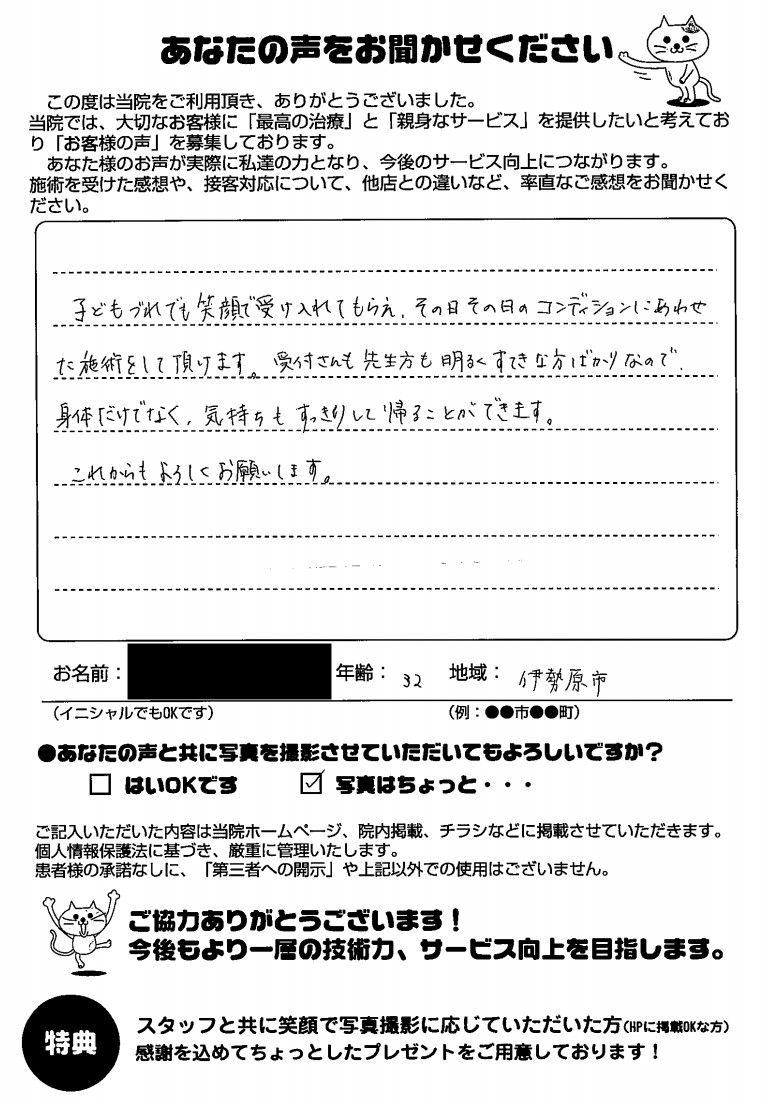 あなたの声をお聞かせください
この度は当院をご利用頂き、ありがとうございました。
当院では、大切なお客様に「最高の治療」と「親身なサービス」を提供したいと考えてお
り「お客様の声」を募集しております。
あなた様のお声が実際に私達の力となり、今後のサービス向上につながります。
施術を受けた感想や、接客対応について、他店との違いなど、率直なご感想をお聞かせく
ださい。
子どもづれでも笑顔で受け入れてもらえ、その日その日のコンディションにあわせ
た施術をして頂けます。受付さんも先生方も明るくすてきな方ばかりなので、
身体だけでなく、気持ちもすっきりして帰ることができます。
これからもよろしくお願いします。
お名前： 年齢：32 地域：伊勢原市
（イニシャルでもOKです） （例：●●市●●町）
●あなたの声と共に写真を撮影させていただいてもよろしいですか？
□ はいOKです ☑ 写真はちょっと・・・
ご記入いただいた内容は当院ホームページ、院内掲載、チラシなどに掲載させていただきます。
個人情報保護法に基づき、厳重に管理いたします。
患者様の承諾なしに、「第三者への開示」や上記以外での使用はございません。
ご協力ありがとうございます！
今後もより一層の技術力、サービス向上を目指します。
特典
スタッフと共に笑顔で写真撮影に応じていただいた方（HPに掲載OKな方）
感謝を込めてちょっとしたプレゼントをご用意しております！